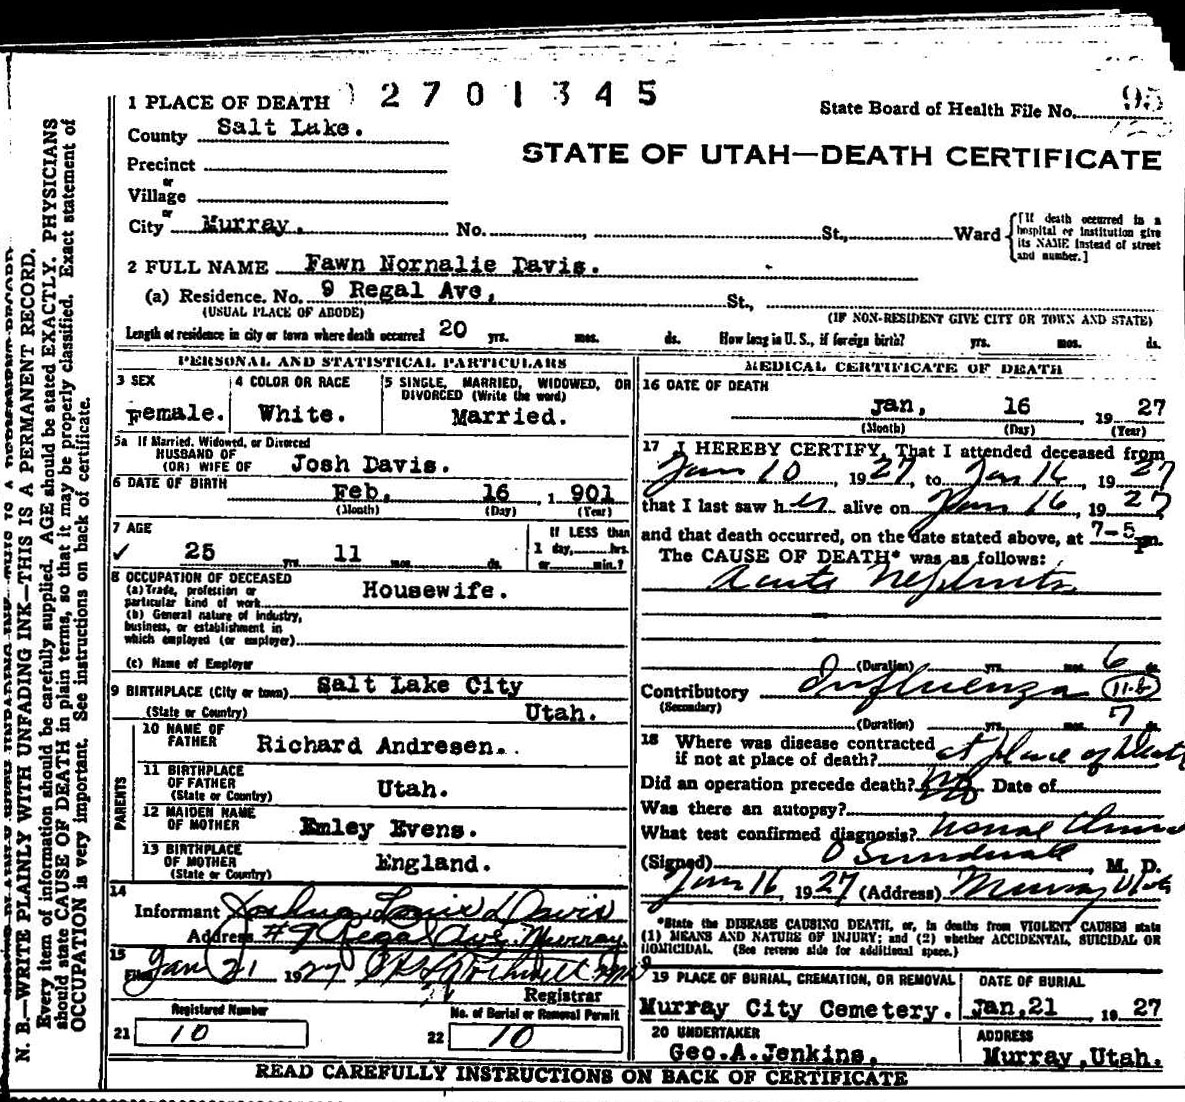 1 PLACE OF DEATH 2701345
State Board of Health File No. 95
County Salt Lake.
STATE OF UTAH—DEATH CERTIFICATE
Precinct
or
Village
or
City Murray. No. , St., Ward
[If death occurred in a hospital or institution give its NAME instead of street and number.]
2 FULL NAME Fawn Nornalie Davis.
(a) Residence. No. 9 Regal Ave, St.,
(USUAL PLACE OF ABODE) (IF NON-RESIDENT GIVE CITY OR TOWN AND STATE)
Length of residence in city or town where death occurred 20 yrs. mos. ds. How long in U. S., if foreign birth? yrs. mos. ds.
PERSONAL AND STATISTICAL PARTICULARS
3 SEX
Female.
4 COLOR OR RACE
White.
5 SINGLE, MARRIED, WIDOWED, OR
DIVORCED (Write the word)
Married.
5a If Married, Widowed, or Divorced
HUSBAND OF
(OR) WIFE OF Josh Davis.
6 DATE OF BIRTH Feb, 16 , 1 901
(Month) (Day) (Year)
7 AGE
✓ 25 yrs. 11 mos. ds.
If LESS than
1 day, hrs.
or min.?
8 OCCUPATION OF DECEASED
(a) Trade, profession or
particular kind of work Housewife.
(b) General nature of industry,
business, or establishment in
which employed (or employer)
(c) Name of Employer
9 BIRTHPLACE (City or town) Salt Lake City
(State or Country) Utah.
PARENTS
10 NAME OF
FATHER Richard Andresen..
11 BIRTHPLACE
OF FATHER
(State or Country) Utah.
12 MAIDEN NAME
OF MOTHER Emley Evens.
13 BIRTHPLACE
OF MOTHER
(State or Country) England.
14
Informant Joshua Louis Davis
Address #9 Regal Ave. Murray
15
Filed Jan 21 1927
Registrar
Registered Number
21 10
No. of Burial or Removal Permit
22 10
MEDICAL CERTIFICATE OF DEATH
16 DATE OF DEATH
Jan, 16 19 27
(Month) (Day) (Year)
17 I HEREBY CERTIFY, That I attended deceased from
Jan 10, 1927, to Jan 16, 1927
that I last saw her alive on Jan 16, 1927
and that death occurred, on the date stated above, at 7-5 pm.
The CAUSE OF DEATH* was as follows:
Acute Nephritis
(Duration) yrs. mos. 6 ds.
Contributory Influenza 11-b
(Secondary)
(Duration) yrs. mos. 7 ds.
18 Where was disease contracted
if not at place of death? at place of death
Did an operation precede death? No Date of
Was there an autopsy?
What test confirmed diagnosis?
(Signed) Sundwall, M. D.
Jan 16, 1927 (Address) Murray Utah
*State the DISEASE CAUSING DEATH, or, in deaths from VIOLENT CAUSES state
(1) MEANS AND NATURE OF INJURY; and (2) whether ACCIDENTAL, SUICIDAL OR
HOMICIDAL. (See reverse side for additional space.)
19 PLACE OF BURIAL, CREMATION, OR REMOVAL
Murray City Cemetery.
DATE OF BURIAL
Jan,21 , 19 27
20 UNDERTAKER
Geo.A.Jenkins,
ADDRESS
Murray,Utah.
READ CAREFULLY INSTRUCTIONS ON BACK OF CERTIFICATE
N. B.—WRITE PLAINLY WITH UNFADING INK—THIS IS A PERMANENT RECORD.
Every item of information should be carefully supplied. AGE should be stated EXACTLY. PHYSICIANS
should state CAUSE OF DEATH in plain terms, so that it may be properly classified. Exact statement of
OCCUPATION is very important. See instructions on back of certificate.